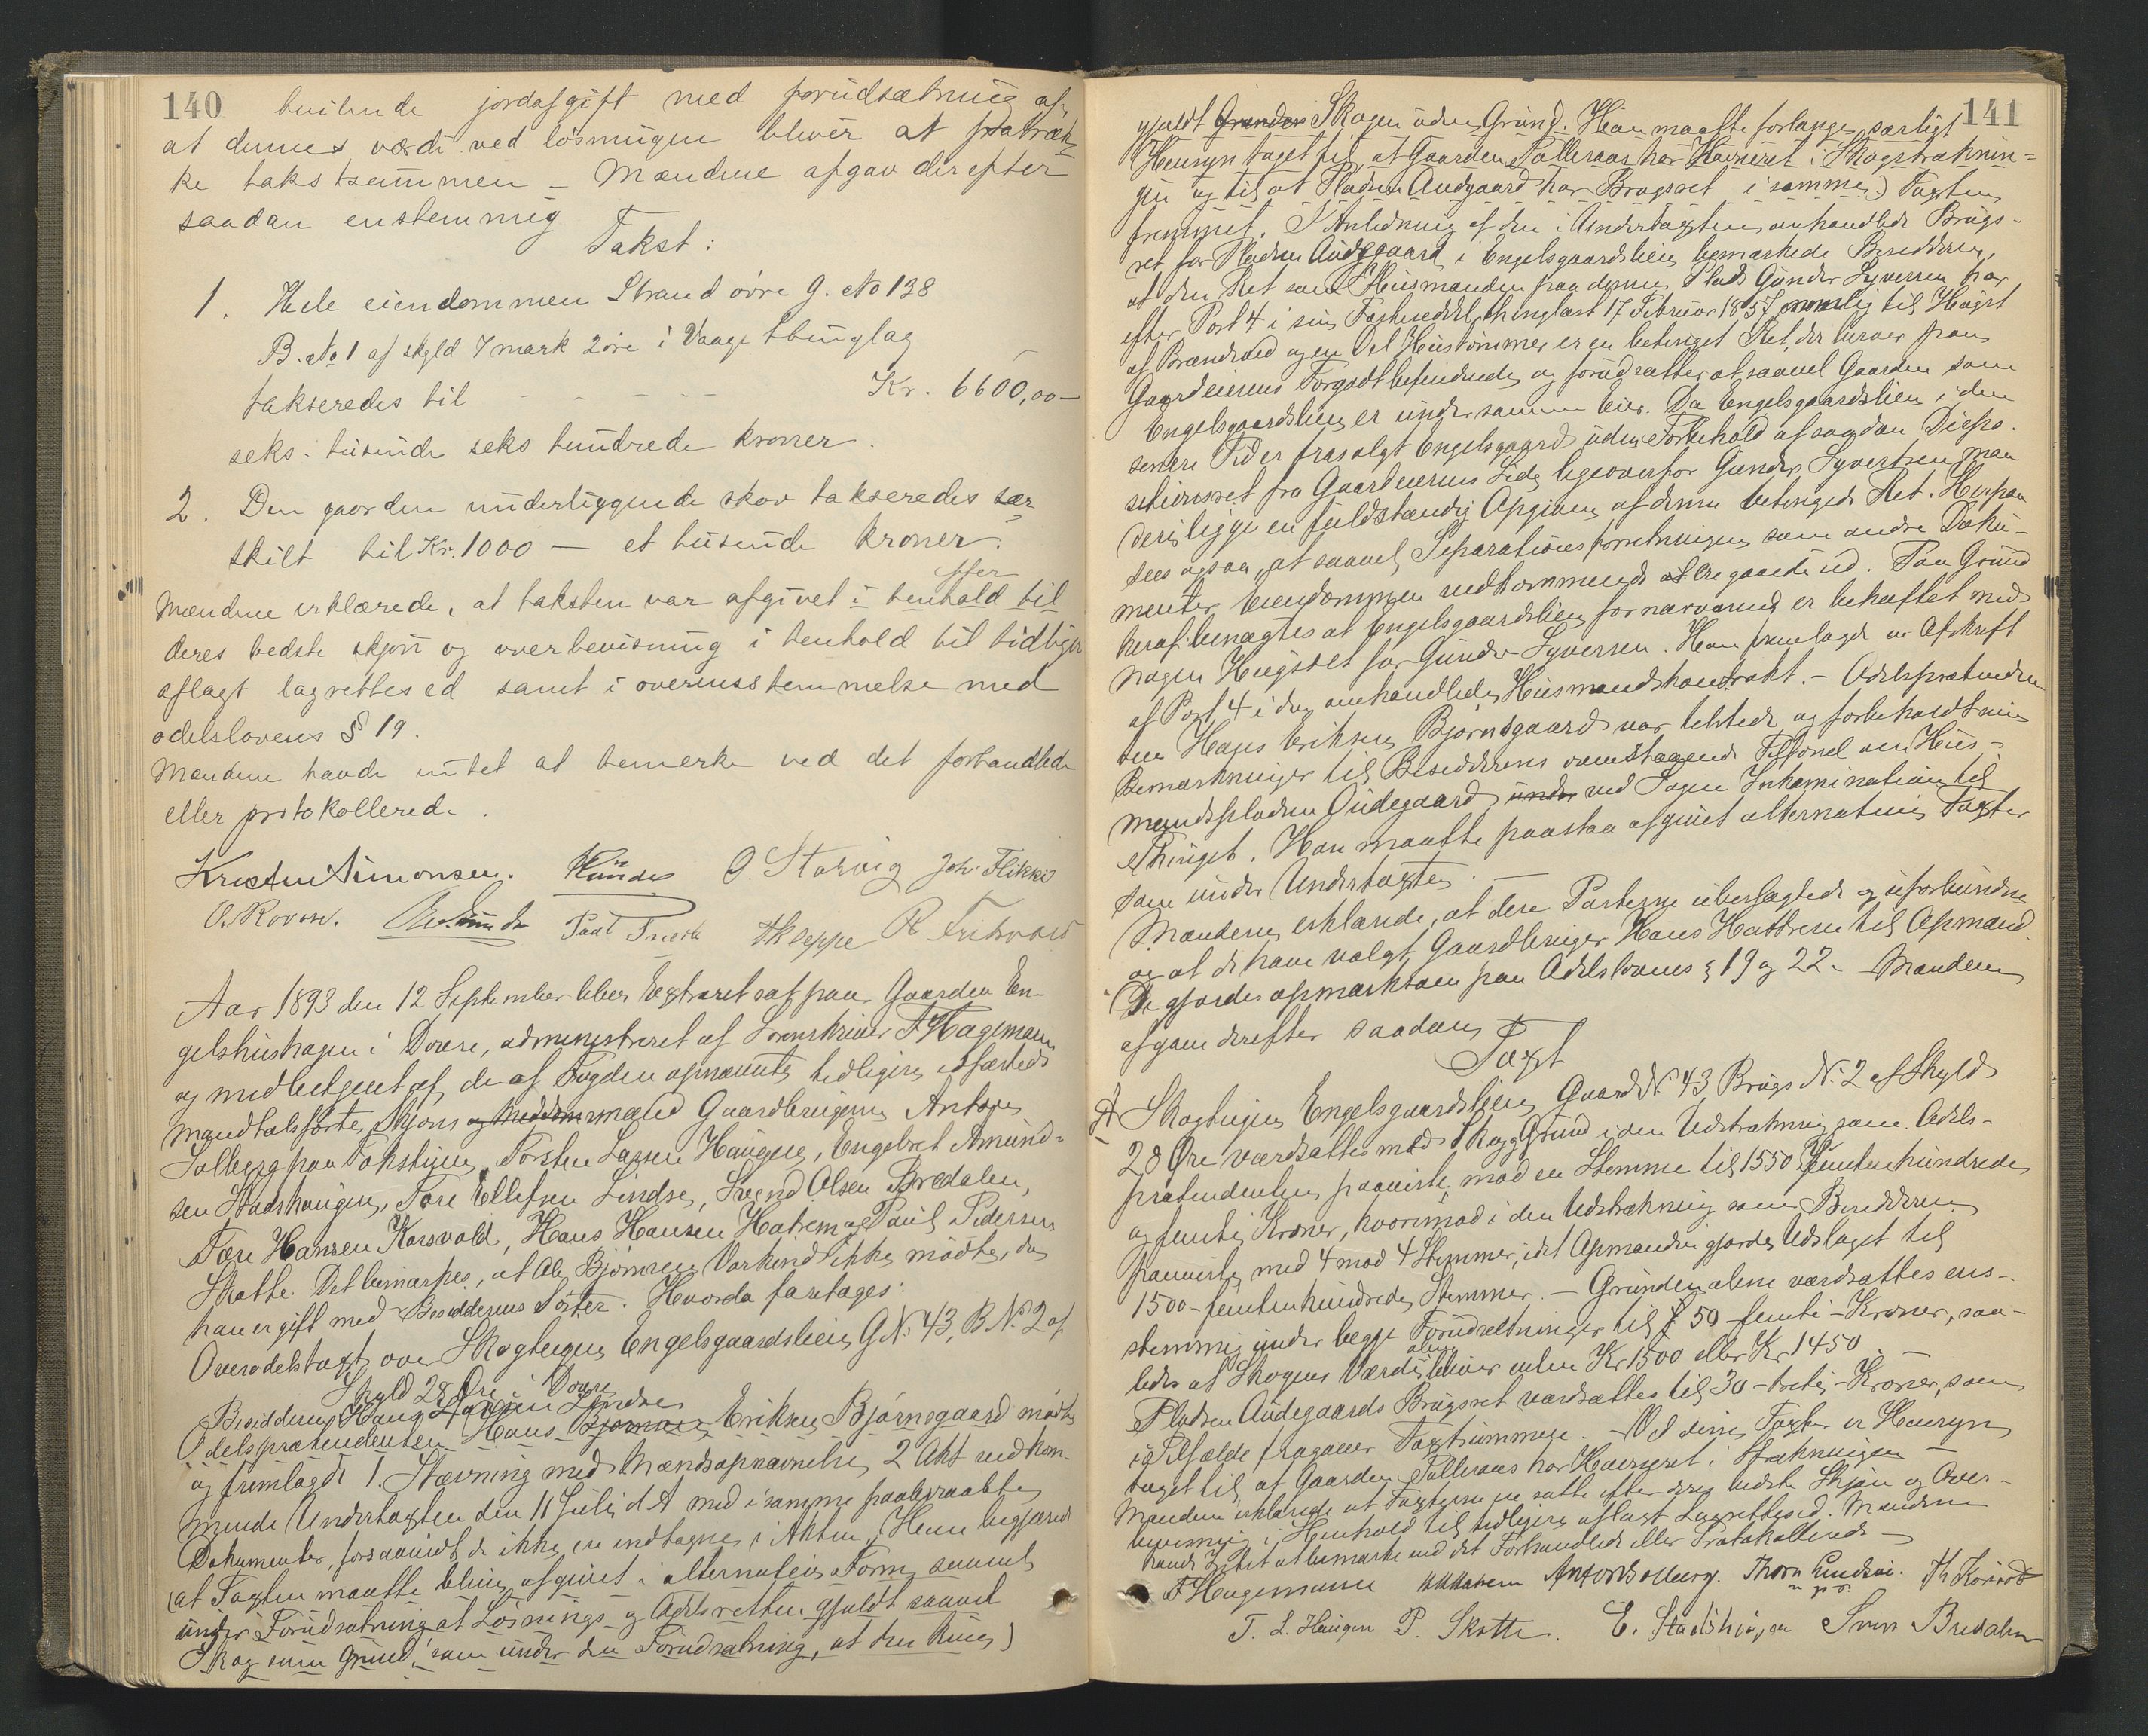 140
hvilende jordafgift med forudsætning af
at dennes værdi ved løsningen bliver at fratræk-
ke takstsummen – Mændene afgav derefter
saadan enstemmig
Takst:
1. Hele eiendommen Strand øvre G. No 138
B. No 1 af skyld 7 mark 2 øre i Vaage thinglag
takseredes til - - - - - Kr. 6600,00 –
seks tusinde seks hundrede kroner.
2. Den gaarden underliggende skov takseredes sær
skilt til Kr. 1000 — et tusinde kroner.
Mændene erklærede, at taksten var afgivet i henhold til
deres bedste skjøn og overbevisning i henhold til tidligere
aflagt lagrettesed samt i overensstemmelse med
odelslovens § 19.
Mændene havde intet at bemerke ved det forhandlede
eller protokollerede.
Kristen Simonsen. O. Storvig Joh. Flikke
Paal Kleppe
Aar 1893 den 12 September blev Extraret sat paa Gaarden En-
gelshushagen i Dovre, administreret af Sorenskriver F Hagemann
og medbetjent af de af Fogden opnævnte tidligere edfæstede
mandtalsførte Skjøns og Meddomsmænd Gaardbrugerne Anton
Solberg paa Tokstigen, Torsten Larsen Haugen, Engebret Amund-
sen Stadshaugen, Tore Ellefsen Lindsø, Svend Olsen Bredalen,
Tore Hansen Korsvold, Hans Hansen Hatrem og Paul Pedersen
Skotte. Det bemærkes, at Ole Bjørnsen Varkind ikke mødte, da
han er gift med Besidderens Søster. Hvorda foretages:
Overodelstaxt over Skogteigen Engelsgaardslien G. N. 43, B. N. 2 af
Skyld 28 Øre i Dovre
Besidderen Hans Larsen Lindsø
Odelsprætendenten Hans Bjørnsen Eriksen Bjørnsgaard mødte
og fremlagde 1. Stævning med Mændsopnævnelse, 2 Akt vedkom-
mende Undertaxten den 11 Juli d. A. med i samme paaberaabte
Dokumenter, forsaavidt de ikke ere indtagne i Akten. Han begjærede
(at Taxten maatte blive afgivet i alternativ Form saavel
under Forudsætning at Løsnings- og Odelsretten gjaldt saavel
Skog som Grund, som under den Forudsætning, at den kun)
141
gjaldt Grunden Skogen uden Grund. Han maatte forlange særligt
Hensyn taget til, at Gaarden Tolleraas har Havneret i Skogstræknin-
gen og til at Pladsen Audgaard har Brugsret i samme.) Taxten
fremmet. I Anledning af den i Undertaxten omhandlede Brugs-
ret for Pladsen Audegaard i Engelsgaardslien bemærkede Besidderen,
at den Ret som Husmanden paa denne Plads Gunder Syversen har
efter Post 4 i sin Fæsteseddel, thinglæst 17 Februar 1857 nemlig til Hugst
af Brændeved og en Del Hustømmer er en betinget Ret, der beror paa
Gaardeierens Forgodtbefindende og forudsætter at saavel Gaarden som
Engelsgaardslien er under samme Eier. Da Engelsgaardslien i den
senere Tid er frasolgt Engelsgaard uden Forbehold af saadan Dispo-
sitionsret fra Gaardeierens Side ligeoverfor Gunder Syvertsen maa
deri ligge en fuldstændig Opgivelse af denne betingede Ret. Herpaa
sees ogsaa, at saavel Separationsforretningen som andre Doku-
menter, Eiendommen vedkommende at ere gaaede ud. Paa Grund
heraf benægtes at Engelsgaardslien for nærværende er beheftet med
nogen Hugstret for Gunder Syversen. Han fremlagde en Afskrift
af Post 4 i den omhandlede Husmandskontrakt. – Odelsprætenden-
ten Hans Eriksen Bjørnsgaard var tilstede og forbeholdt sine
Bemærkninger til Besidderens ovenstaaende Tilførsel om Hus-
mandspladsen Audegaard under ved Sagens Inkamination til
Thinget. Han maatte paastaa afgivet alternative Taxter
som under Undertaxten. —
Mændene erklærede, at dere Parterne ubeslægtede og uforbundne
og at de have valgt Gaardbruger Hans Hattrem til Opmand.
De gjordes opmærksom paa Odelslovens § 19 og 22. – Mændene
afgav derefter saadan
Taxt
A Skogteigen Engelsgaardslien, Gaards N. 43, Brugs N. 2 af Skyld
28 Øre værdsattes med Skog og Grund i den Udstrækning som Odels-
prætendenten paaviste, mod en Stemme til 1550 femtenhundrede
og femti Kroner, hvorimod i den Udstrækning som Besidderen
paaviste, med 4 mod 4 Stemmer, idet Opmanden gjorde Udslaget til
1500 – femtenhundrede Stemmer. – Grunden alene værdsattes ens-
stemmig under begge Forudsetninger til 50 – femti – Kroner, saa-
ledes at Skogens Værdi alene bliver enten Kr 1500 eller Kr 1450
Pladsen Audegaards Brugsret værdsættes til 30 – treti – Kroner, som
i Tilfælde fragaaer Taxtsummen. – Ved disse Taxter er Hensyn
taget til, at Gaarden Tolleraas har Havneret i Strækningen –
Mændene erklærede at Taxterne ere satte efter deres bedste Skjøn og Over-
bevisning i Henhold til tidligere aflagt Lagrettesed. Mændene
havde Intet at bemærke ved det Forhandlede eller Protokollerede –
F Hagemann HHHatrem Anton Solberg. Thore Lindsøe. Th Korsvold
m. p. P.
T. L. Haugen P. Skotte. E. Stadshaugen Sven Bredalen